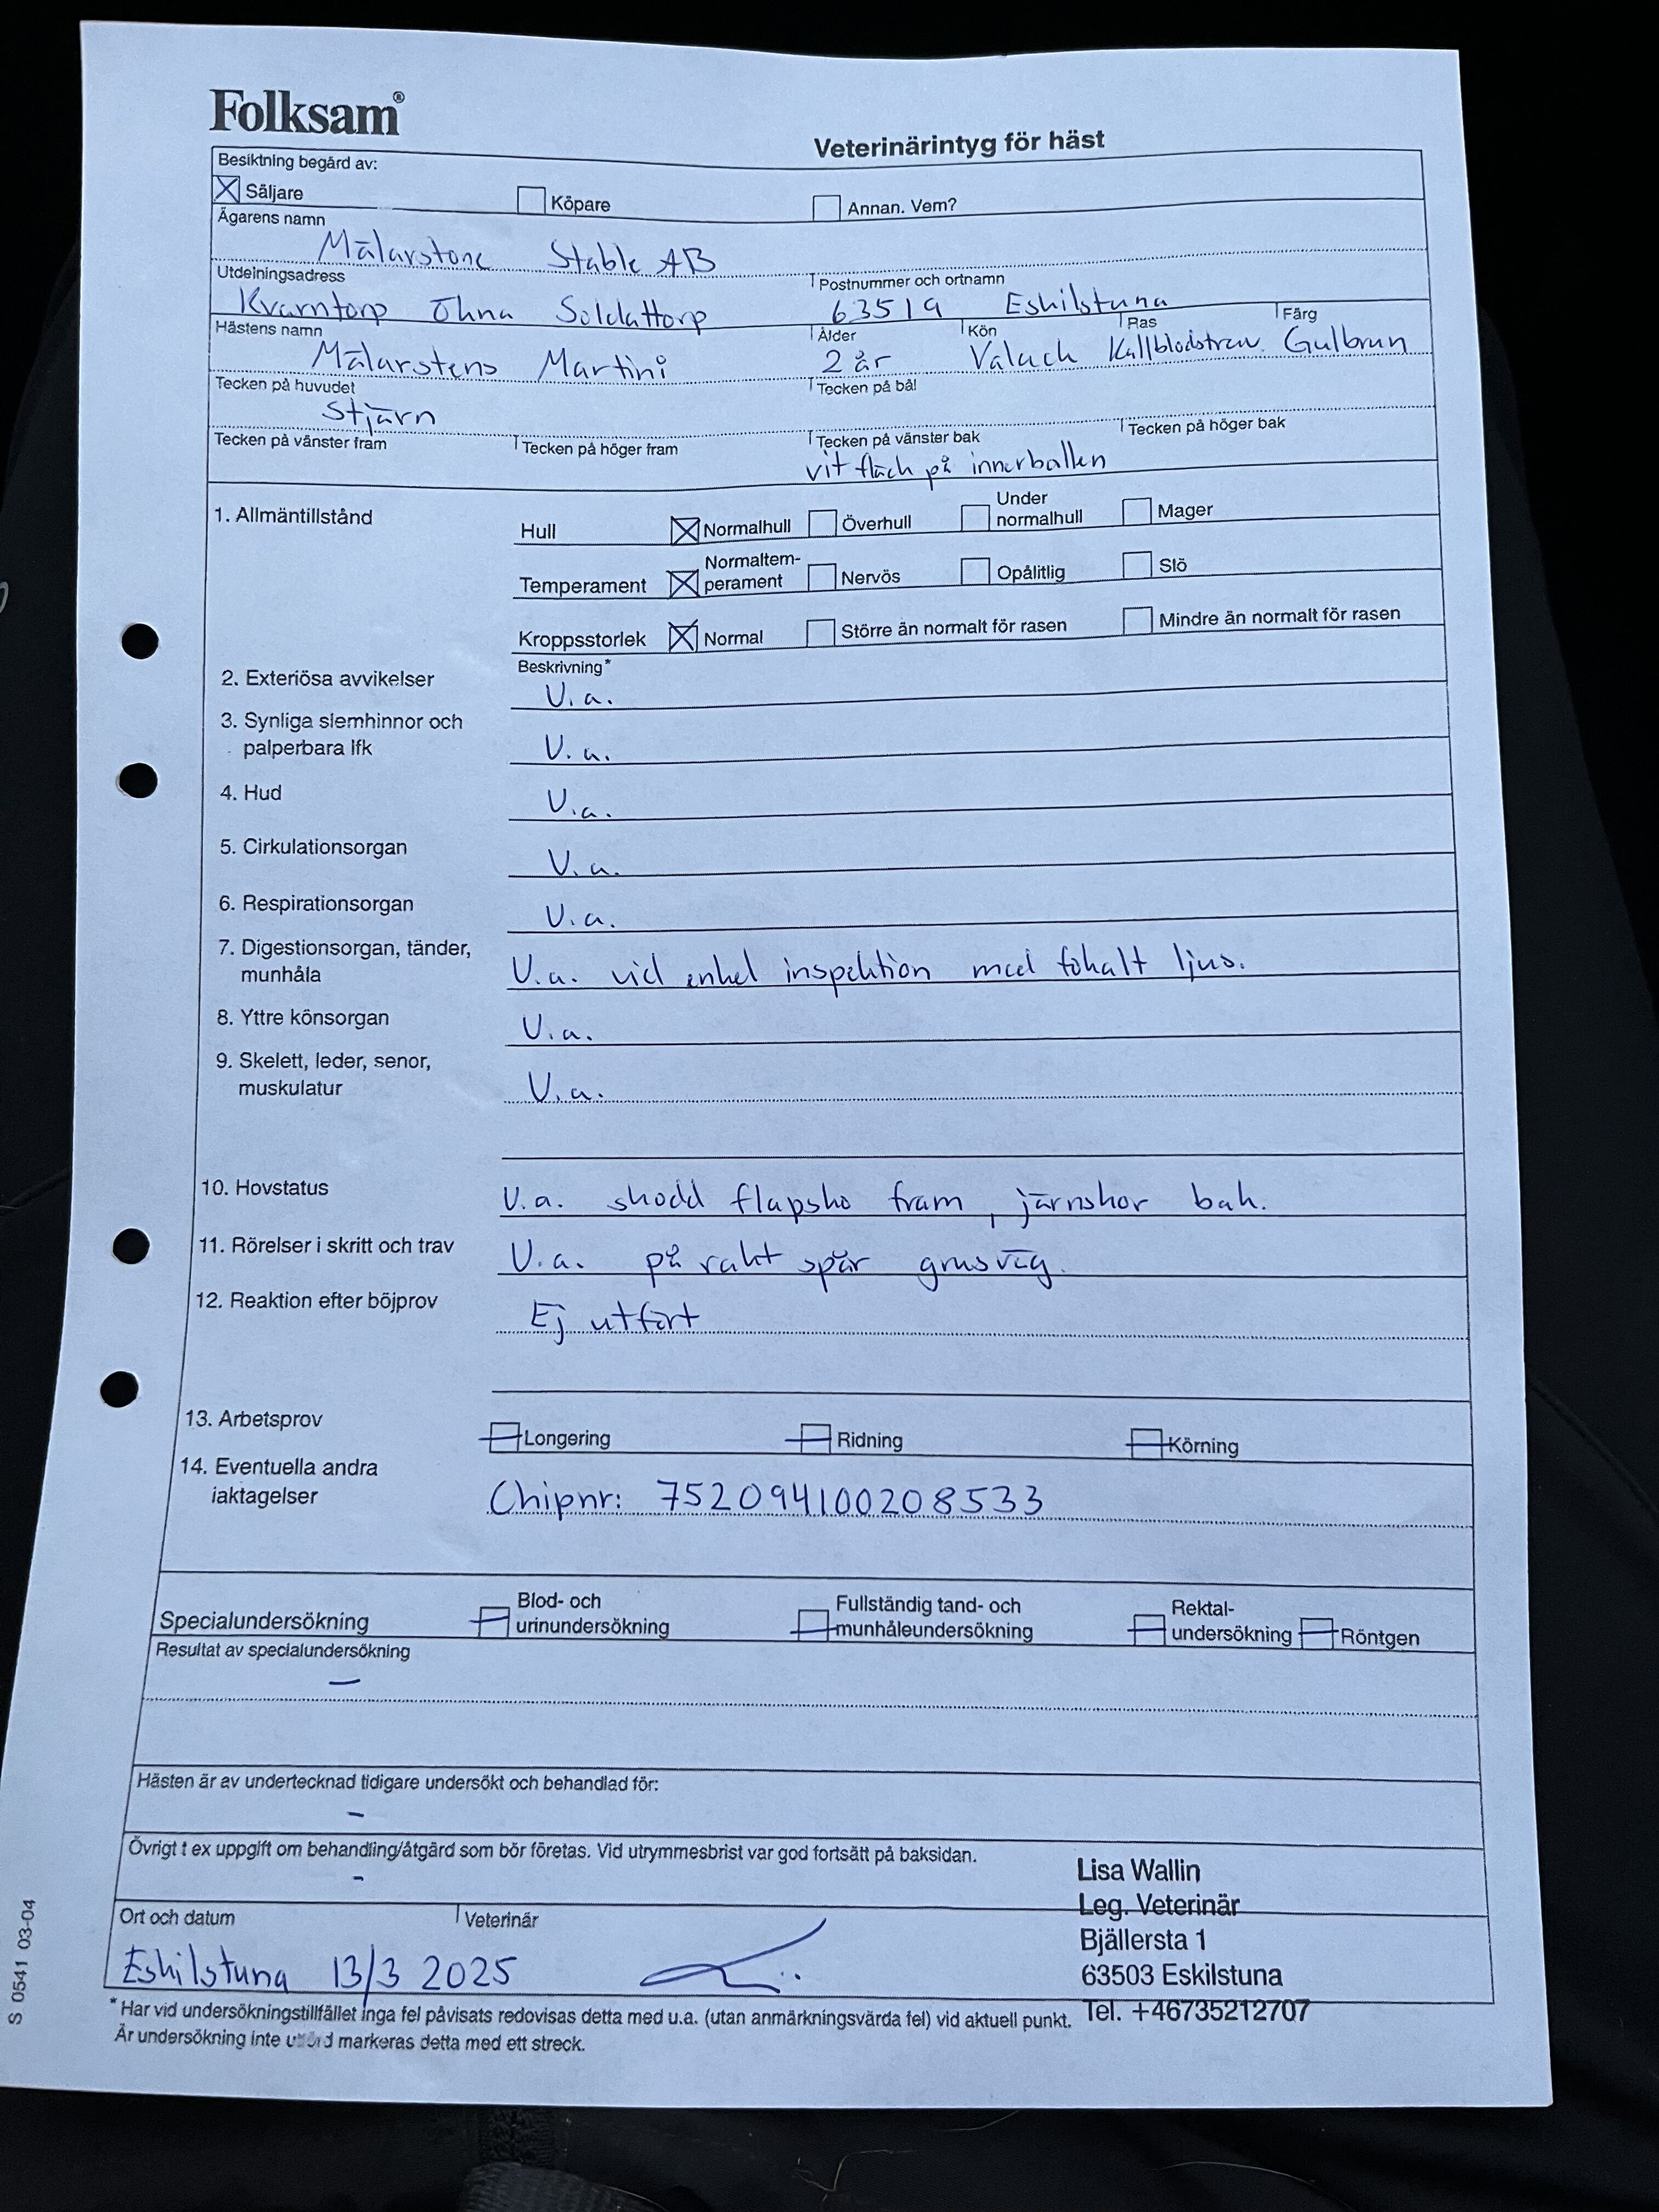 Folksam®
Veterinärintyg för häst
Besiktning begärd av:
Säljare Köpare Annan. Vem?
Ägarens namn
Mälarstone Stable AB
Utdelningsadress Postnummer och ortnamn
Kvarntorp Öhna Soldattorp 63519 Eskilstuna
Hästens namn Ålder Kön Ras Färg
Mälarstens Martini 2 år Valack Kallblodstrav. Gulbrun
Tecken på huvudet Tecken på bål
Stjärn
Tecken på vänster fram Tecken på höger fram Tecken på vänster bak Tecken på höger bak
vit fläck på innerballen
1. Allmäntillstånd
Hull Normalhull Överhull Under normalhull Mager
Temperament Normaltem-perament Nervös Opålitlig Slö
Kroppsstorlek Normal Större än normalt för rasen Mindre än normalt för rasen
Beskrivning*
2. Exteriösa avvikelser U.a.
3. Synliga slemhinnor och
palperbara lfk U.a.
4. Hud U.a.
5. Cirkulationsorgan U.a.
6. Respirationsorgan U.a.
7. Digestionsorgan, tänder,
munhåla U.a. vid enkel inspektion med fokalt ljus.
8. Yttre könsorgan U.a.
9. Skelett, leder, senor,
muskulatur U.a.
10. Hovstatus U.a. skodd flapsko fram, järnskor bak.
11. Rörelser i skritt och trav U.a. på rakt spår grusväg.
12. Reaktion efter böjprov Ej utfört
13. Arbetsprov Longering Ridning Körning
14. Eventuella andra
iaktagelser Chipnr: 752094100208533
Specialundersökning Blod- och urinundersökning Fullständig tand- och munhåleundersökning Rektal-undersökning Röntgen
Resultat av specialundersökning
–
Hästen är av undertecknad tidigare undersökt och behandlad för:
–
Övrigt t ex uppgift om behandling/åtgärd som bör företas. Vid utrymmesbrist var god fortsätt på baksidan.
–
Lisa Wallin
Leg. Veterinär
Bjällersta 1
63503 Eskilstuna
Tel. +46735212707
Ort och datum Veterinär
Eskilstuna 13/3 2025
*Har vid undersökningstillfället inga fel påvisats redovisas detta med u.a. (utan anmärkningsvärda fel) vid aktuell punkt.
Är undersökning inte utförd markeras detta med ett streck.
S 0541 03-04